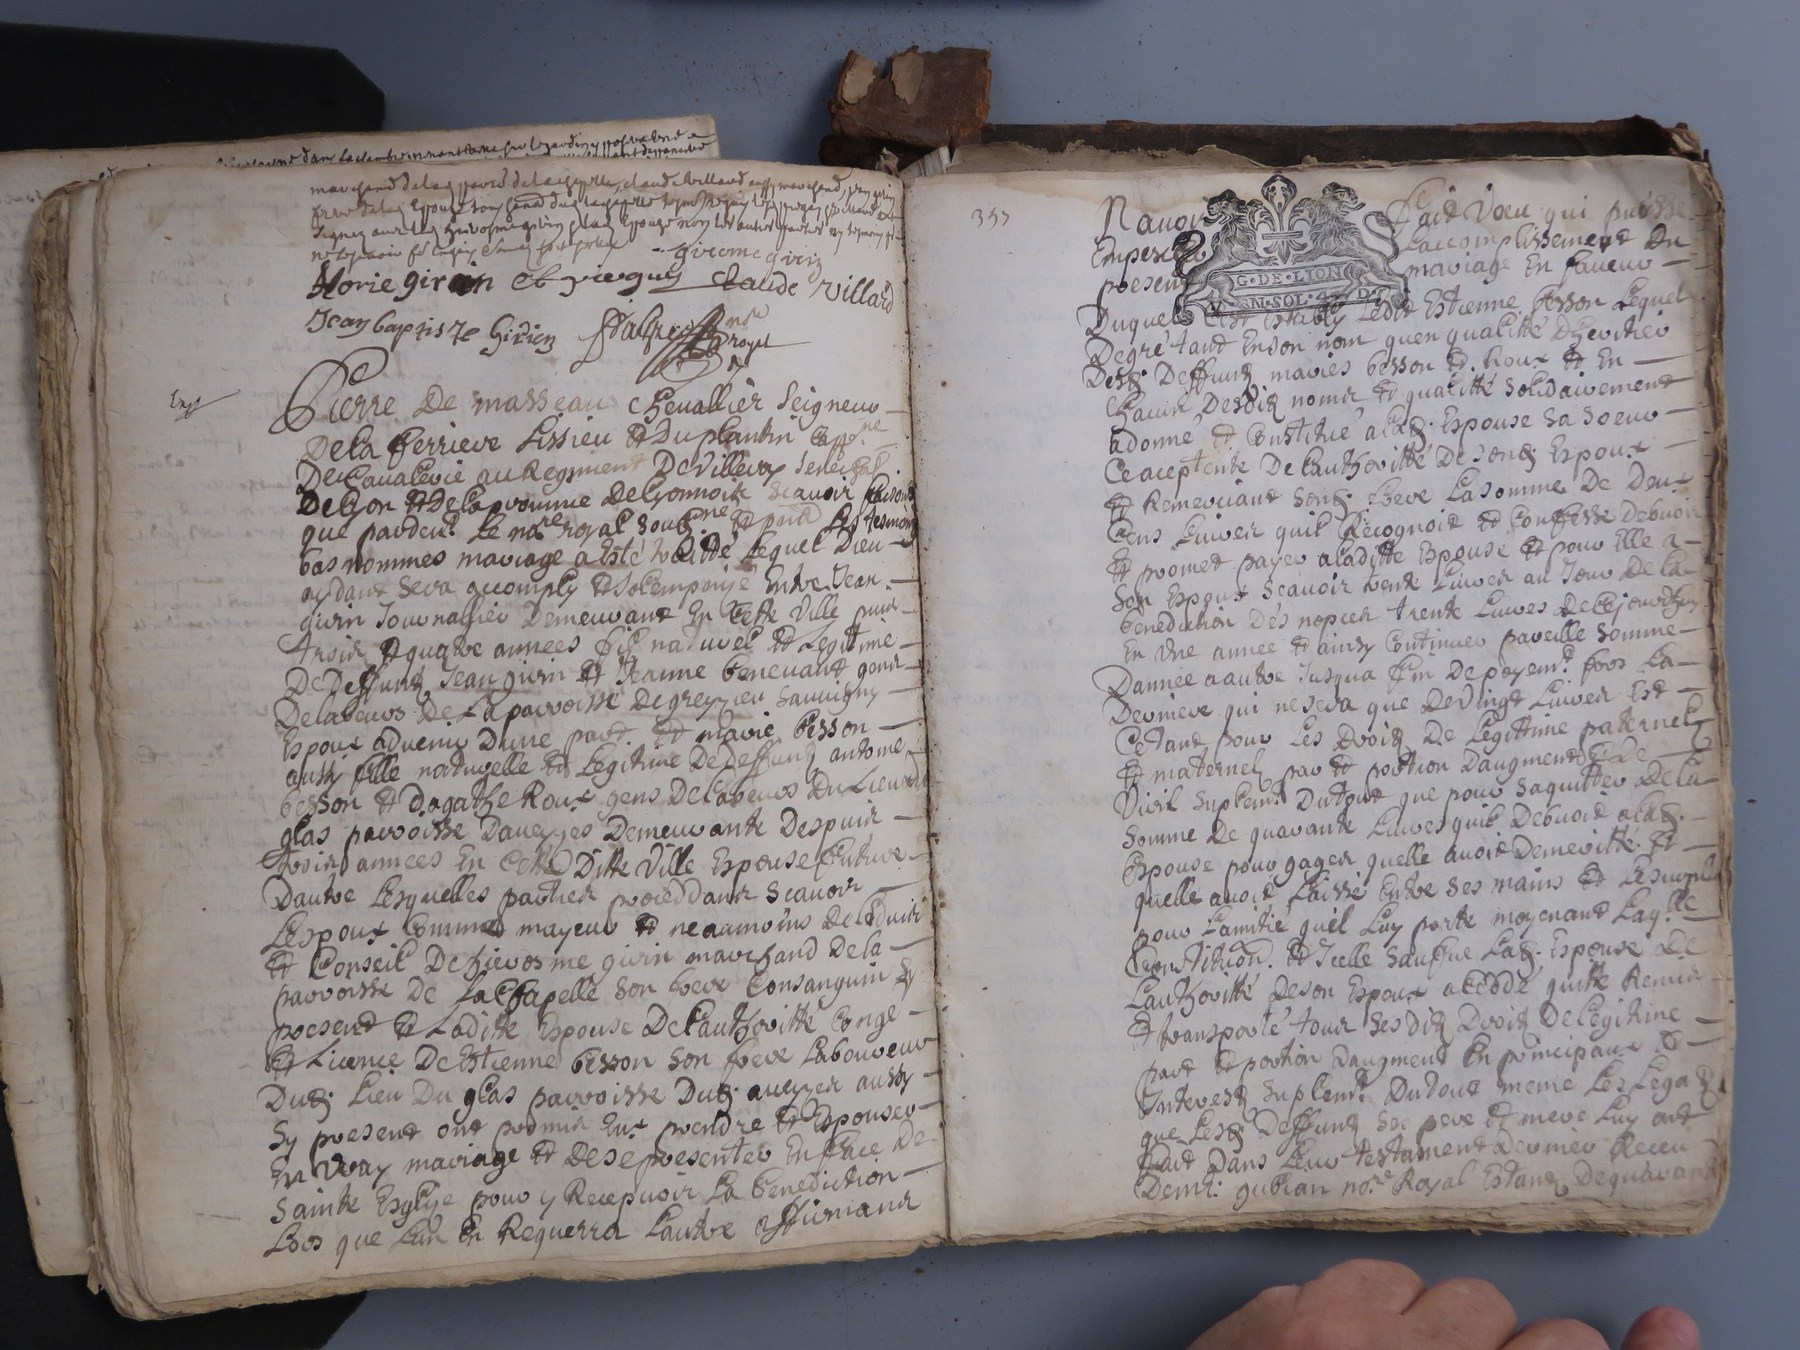 marchand
Marie girin et vierguy Claude Villard
Jean baptiste Girin
royal
Pierre De masseau Chevallier Seigneur
De la ferriere Lissieu & Du plantin Capp.ne
De Cavalerie au Regiment De Villeroy Senechal
De Lyon & De la province De Lyonnois Scavoir faisons
que pardev.t Le no.re royal soub.ne & pnts Les tesmoins
bas nommes mariage a esté traitté Lequel Dieu
aydant Sera accomply & Solempnisé Entre Jean
girin Journallier Demeurant En Cette Ville puis
trois ou quatre annees fils naturel & Legitime
De Deffuntz Jean girin & Jeanne benevant gens
De labeurs De La parroisse De grezieu Sauvigny
Espoux advenir Dune part & marie besson
aussy fille naturelle & Legitime De Deffuntz antoine
besson & Dagathe Roux gens De labeurs Du Lieu du
glas parroisse Daveyzes Demeurante Despuis
trois annees En Cette Ditte Ville Espouse future
Dautre Lesquelles parties proceddans Scavoir
Lespoux Comme mayeur & neanmoins De Ladvis
& Conseil De hierosme girin marchand De la
parroisse De La Chapelle Son frere Consanguin Sy
present & Laditte Espouse De Lauthoritté Conge
& Licence De Estienne besson Son frere Laboureur
Dud. Lieu Du glas parroisse Dud. aveyzes aussy
Sy present ont promis Eux prendre & Espouser
En vray mariage & De Se presenter En face De
Sainte Esglise pour y Recepvoir La benediction
Lors que Lun En Requerra Lautre affirmant
357
Navoir Fait Voeu qui puisse
Empescher Laccomplissement Du
present mariage En faveur
G·DE·LION
Duquel Cest Estably Ledit Estienne besson Lequel
De gré tant En son nom quen qualitté Dheritier
Desd. Deffuntz mariés besson & Roux & En
Chacun Desdits noms & qualitté Solidairement
a donné & Constitué a Lad. Espouse Sa Soeur
Ce aceptente De Lauthoritté De Sond. Espoux
& Remerciant Sond. frere La Somme De Deux
Cens Livres quil Recognoit & Confesse Debvoir
Et promet payer a Laditte Espouse & pour Elle a
Son Espoux Scavoir trente Livres au Jour De La
benediction Des nopces trente Livres De Cejourdhuy
En Une annee & ainsy Continuer pareille Somme
Dannee a autre Jusqua fin De payem.t fors La
Derniere qui ne Sera que De Vingt Livres Est
Cetant pour Les Droitz De Legittime paternelz
& maternelz part & portion Daugment & De
Suplem.t Du tout que pour Saquitter De La
Somme De quarante Livres quil Debvoit a Lad.
Espouse pour gages quelle avoit Demeritté &
quelle avoit Laissé Entre Ses mains &
pour Lamitié quil Luy porte moyenant Laq.lle
Constitution & Icelle Sauf que Lad. Espouse De
Lauthoritté De son Espoux a Ceddé quitté Remis
& transporté tous Ses Dits Droitz De Legitime
part & portion Daugment En principaux &
Interestz Suplem.t Du tout meme Les Legatz
que Lesd. Deffuntz Ses pere & mere Luy ont
fait Dans Leur testament Dernier Receu
De m.e gubian no.re Royal Estant De quarante